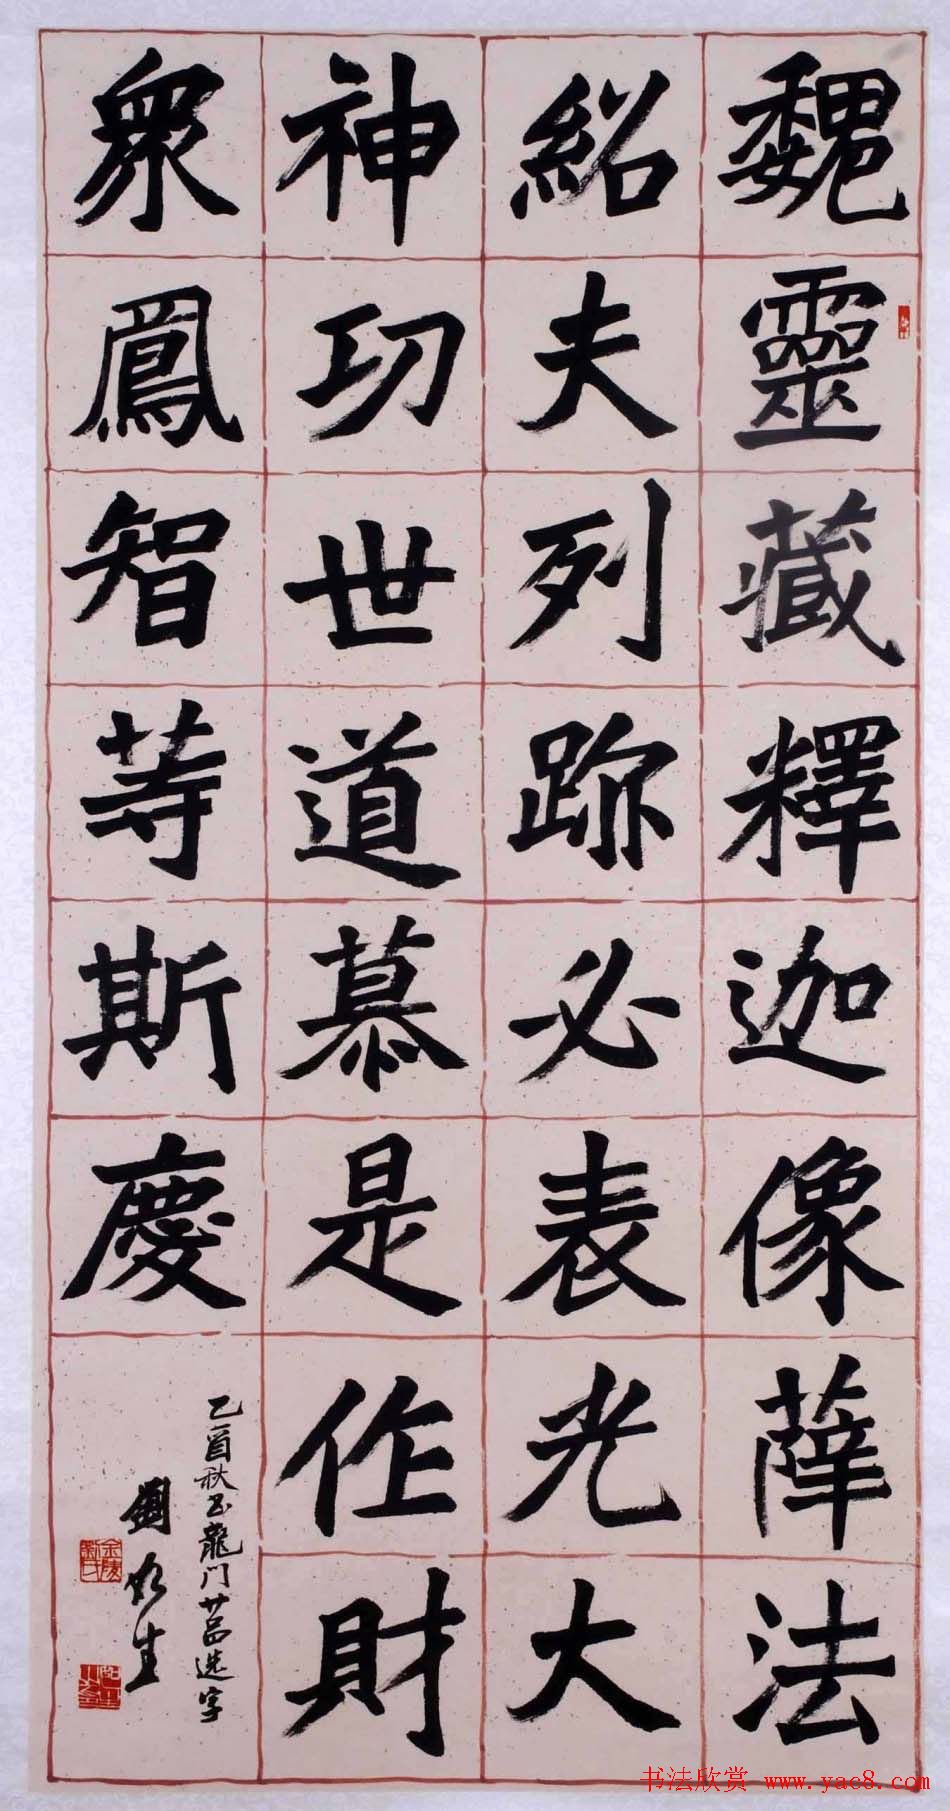 魏靈藏釋迦像薛法
紹夫列跡必表光大
神功世道慕是作財
衆鳳智等斯慶
乙酉秋書龍门廿品选字
劉
生
书法欣赏 www.yac8.com